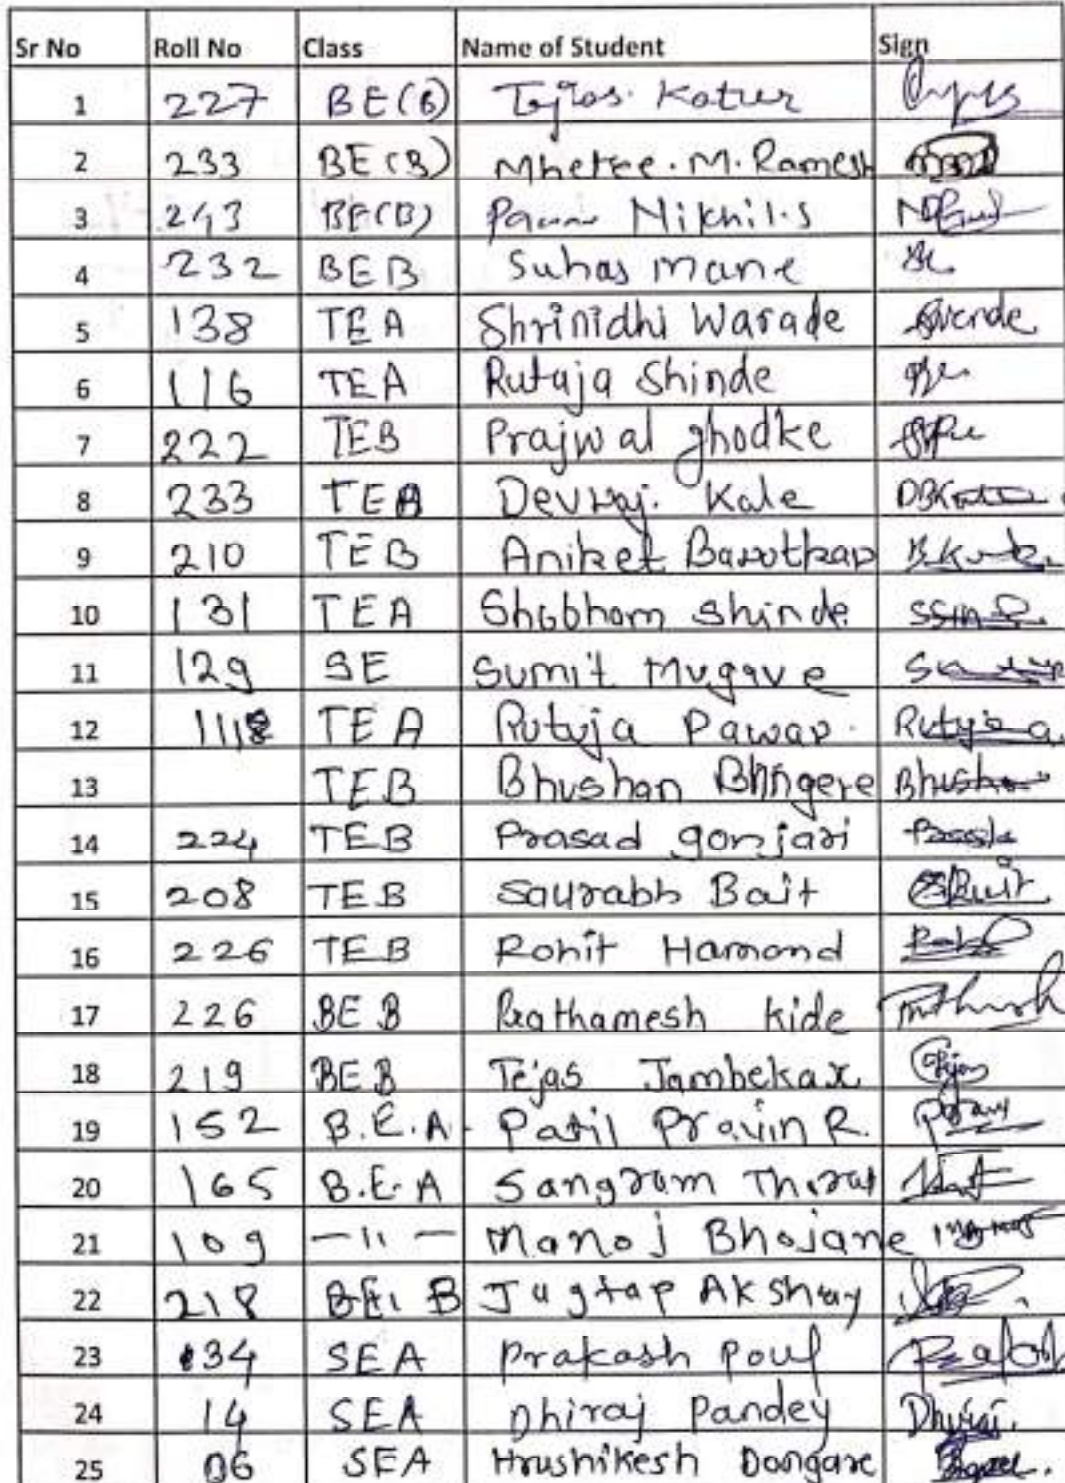 Sr No Roll No Class Name of Student Sign
1 227 BE(B) Tejas. Katur
2 233 BE(B) Mhetre. M. Ramesh
3 243 BE(B) Nikhil.S
4 232 BEB Suhas Mane
5 138 TEA Shrinidhi Warade
6 116 TEA Rutuja Shinde
7 222 TEB Prajwal Ghodke
8 233 TEB Devraj. Kale
9 210 TEB Aniket Barotkar
10 131 TEA Shubham Shinde
11 129 SE Sumit Mugave
12 TEA Rutuja Pawar. Rutuja
13 TEB Bhushan Bhingere Bhushan
14 224 TEB Prasad gonjari
15 208 TEB Saurabh Bait
16 226 TEB Rohit Hamand
17 226 BE B Prathamesh Kide
18 219 BE B Tejas Jambekar
19 152 B.E.A. Patil Pravin R.
20 165 B.E.A Sangram Thorat
21 109 —11— Manoj Bhojane
22 218 B Jagtap Akshay
23 34 SEA Prakash
24 14 SEA Dhiraj Pandey Dhiraj.
25 06 SEA Hrushikesh Dongare